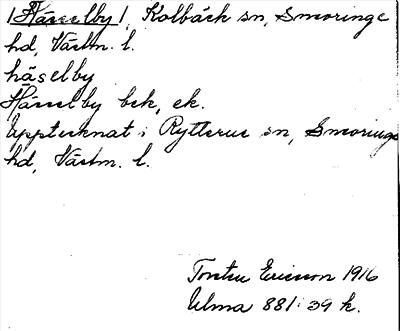 /Hässelby/, Kolbäck sn, Snevringe
hd, Västm. l.
häselby
Hässelby bck, ek.
Upptecknat i Rytterne sn, Snevringe
hd, Västm. l.
Torsten Ericsson 1916
Ulma 881:39 k.